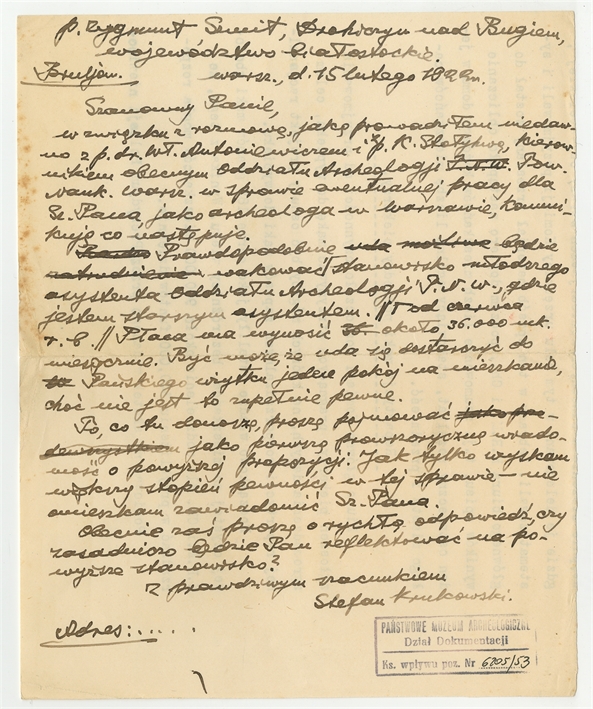 p. Zygmunt Szmit, Drohiczyn nad Bugiem,
województwo białostockie.
Bruljon. warsz., d. 15 lutego 1922 r.
Szanowny Panie,
w związku z rozmową, jaką prowadziłem niedaw-
no z p. dr. Wł. Antoniewiczem i p. K. Stołyhwą, kierow-
nikiem obecnym Oddziału Archeologji T. N. W. Tow.
Nauk. Warsz. w sprawie ewentualnej pracy dla
Sz. Pana, jako archeologa w Warszawie, komuni-
kuję co następuje.
Prawdopodobnie uda możliwe będzie
zatrudnienie wakować stanowisko młodszego
asystenta Oddziału Archeologji T. N. W., gdzie
jestem starszym asystentem. // od czerwca
r. b. // Płaca ma wynosić 36 około 36.000 mk.
miesięcznie. Być może, że uda się dostarczyć do
Pańskiego użytku jeden pokój na mieszkanie,
choć nie jest to zupełnie pewne.
To, co tu donoszę, proszę pojmować jako prze-
dewszystkiem jako pierwszą prowizoryczną wiado-
mość o powyższej propozycji. Jak tylko uzyskam
większy stopień pewności w tej sprawie – nie
omieszkam zawiadomić Sz. Pana.
Obecnie zaś proszę o rychłą odpowiedź, czy
zasadniczo będzie Pan reflektować na po-
wyższe stanowisko?
Z prawdziwym szacunkiem
Stefan Krukowski.
Adres: .....
PAŃSTWOWE MUZEUM ARCHEOLOGICZNE
Dział Dokumentacji
Ks. wpływu poz. Nr 6205/53